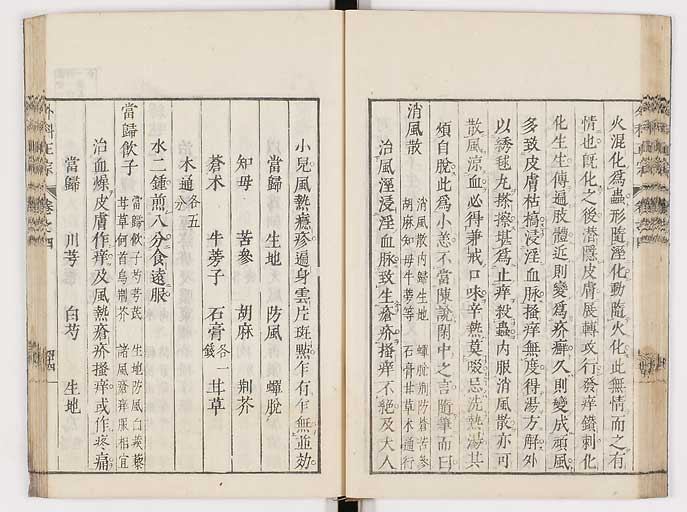 火混化為蟲形隨溼化動隨火化此無情而之有
情也旣化之後潛隱皮膚展轉攻行發痒鑽刺化
化生生傳遍肢體近則變為疥癬久則變成頑風
多致皮膚枯槁浸淫血脉搔痒無度得湯方解外
以綉毬丸搽擦堪為止痒殺蟲內服消風散亦可
散風涼血必得兼戒口味辛熱莫啜忌洗熱湯其
煩自脫此為小恙不當陳說閑中之言隨筆而曰
消風散
消風散內歸生地 蟬脫荆防蒼苦參
胡麻知母牛蒡等 石膏甘草木通行
治風溼浸淫血脉致生瘡疥搔痒不絕及大人
小兒風熱癮疹遍身雲片斑㸃乍有乍無並効
當歸 生地 防風 蟬脫
知母 苦參 胡麻 荆芥
蒼朮 牛蒡子 石膏各一錢 甘草
木通各五分
水二鍾煎八分食遠服
當歸飲子
當歸飲子芍芎茋 生地防風白蒺藜
甘草何首烏荆芥 諸風發痒服相宜
治血燥皮膚作痒及風熱瘡疥搔痒或作疼痛
當歸 川芎 白芍 生地
外科正宗 卷之四